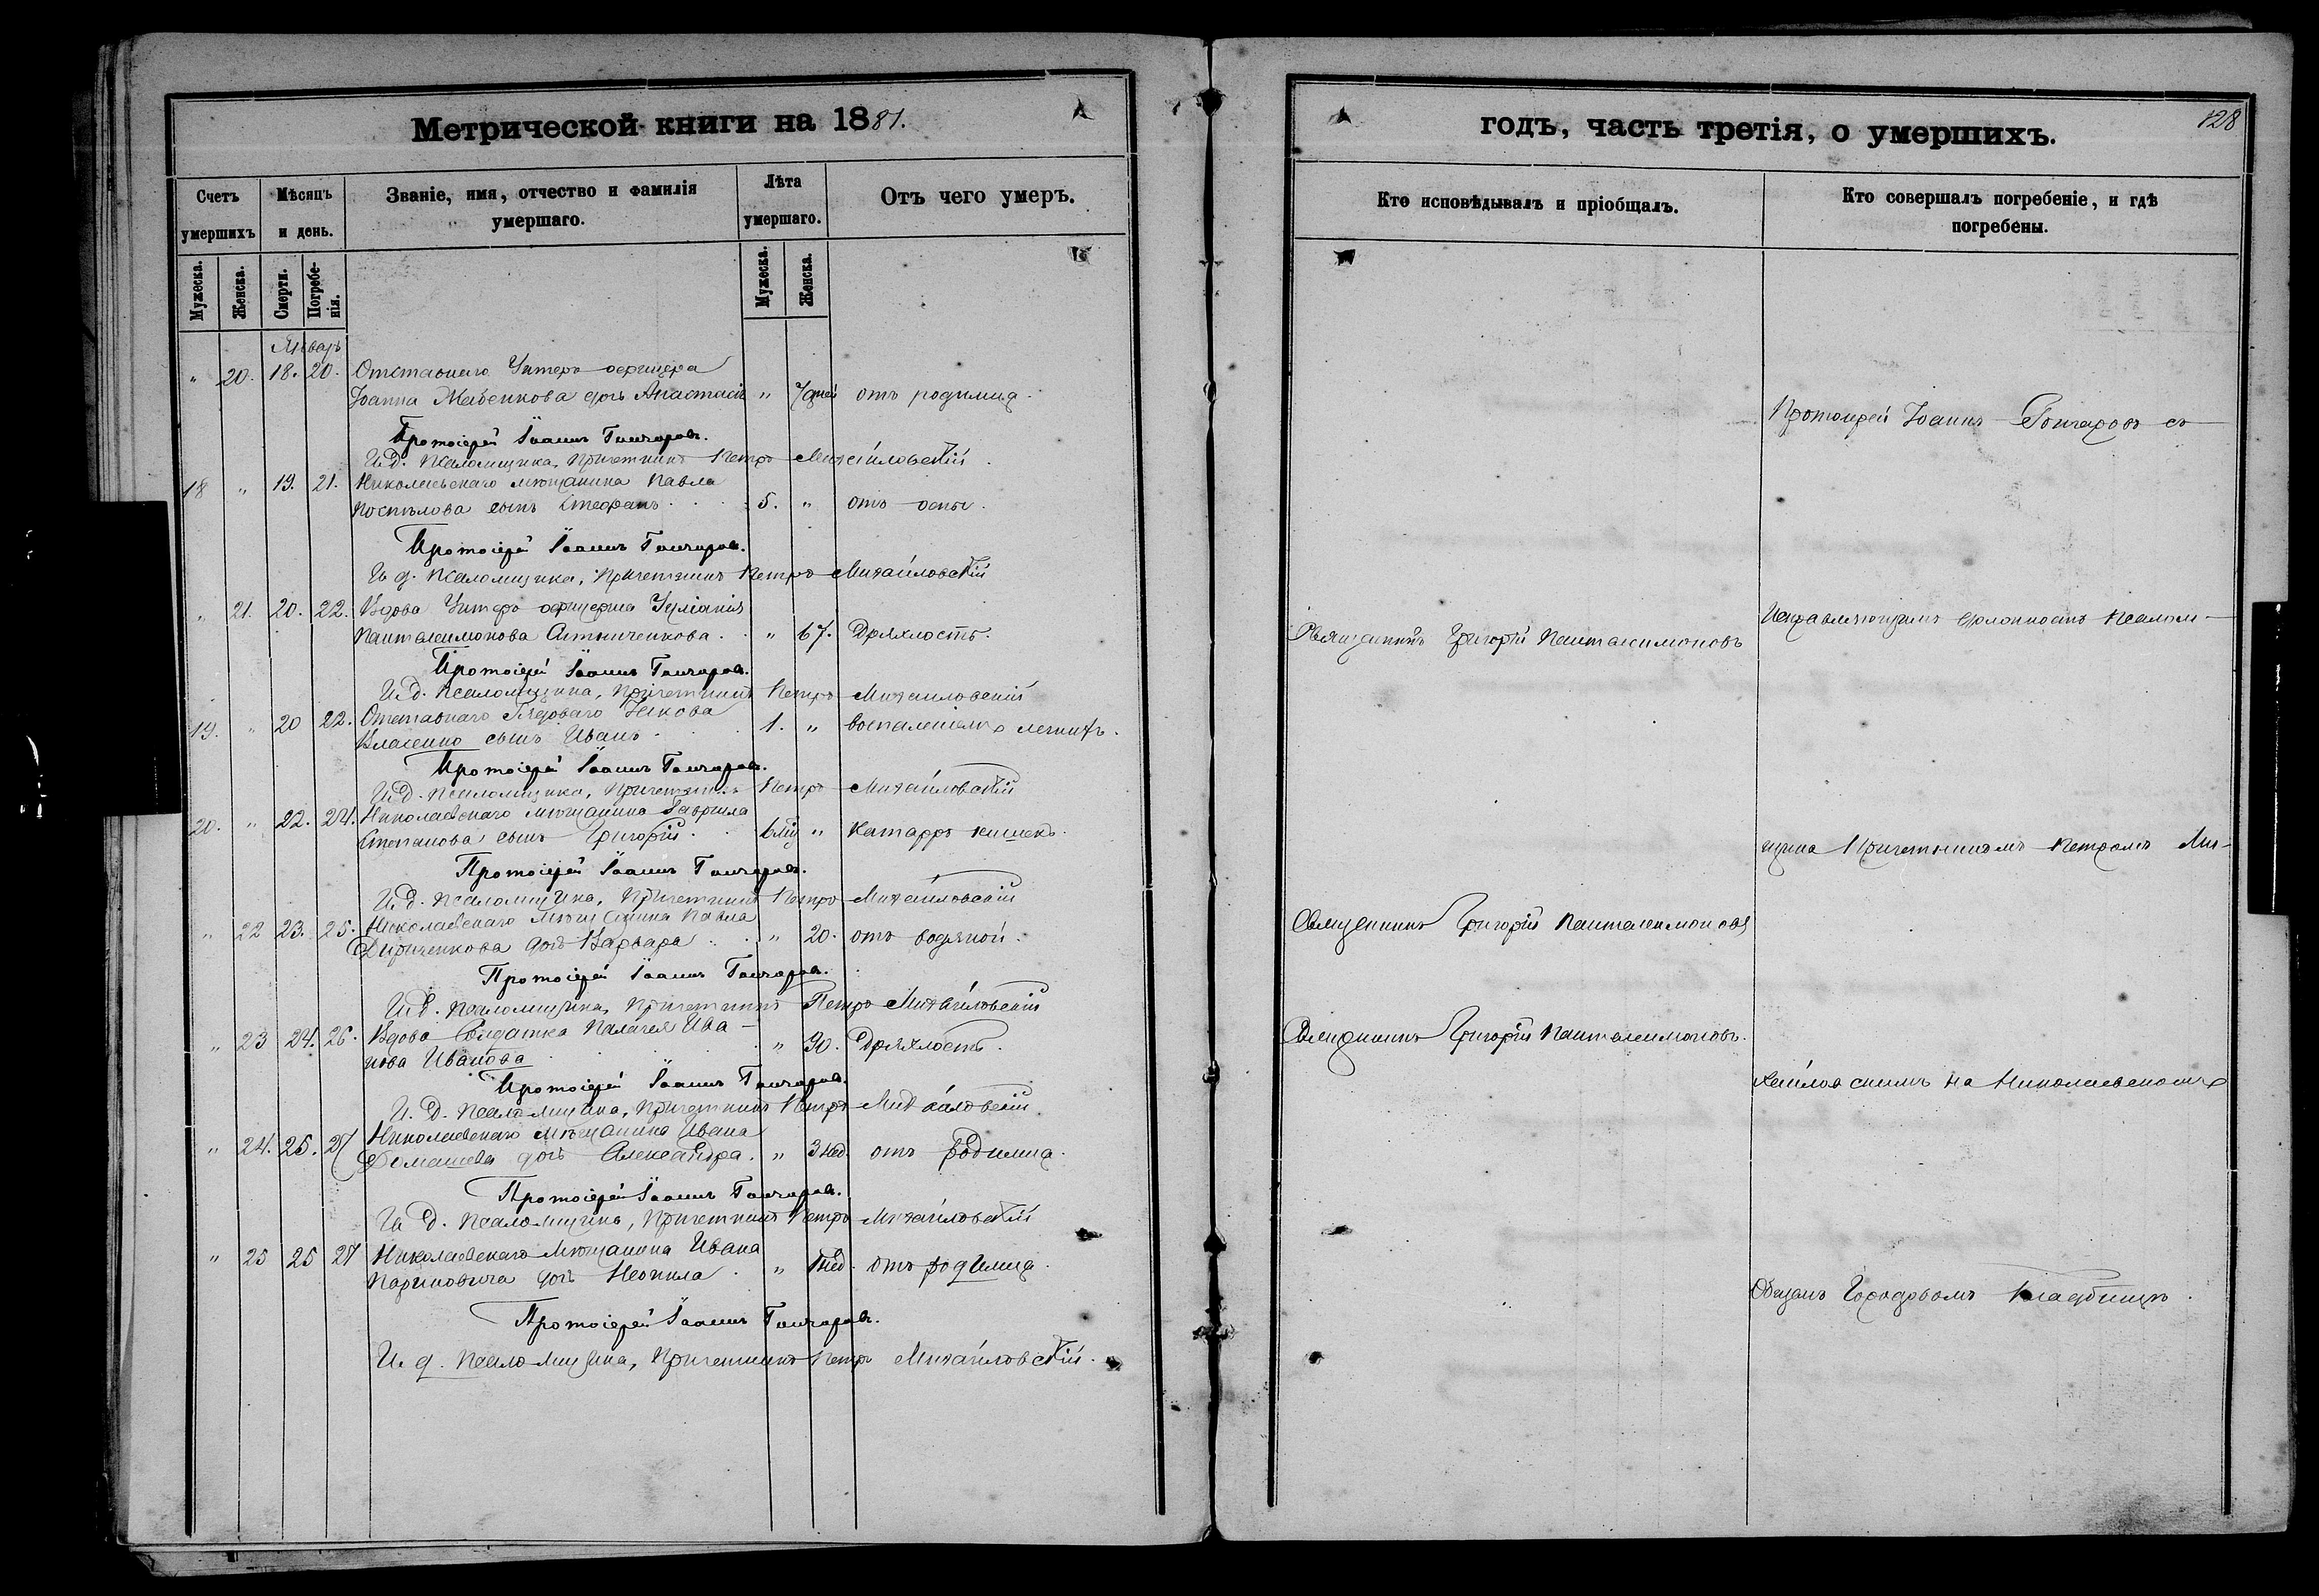 Метрической книги на 1881.
годъ, часть третія, о умершихъ.
128
Счетъ умершихъ
Мѣсяцъ и день.
Званіе, имя, отчество и фамилія умершаго.
Лѣта умершаго.
Отъ чего умеръ.
Кто исповѣдывалъ и пріобщалъ.
Кто совершалъ погребеніе, и гдѣ погребены.
Мужеска.
Женска.
Смерти.
Погребенія.
Мужеска.
Женска.
Январь
" 20. 18. 20. Отставнаго Унтеръ офицера
Іоанна дочь Анастасія " 7 дней отъ родимца.
Протоіерей Іоаннъ Гончаровъ съ
Протоіерей Іоаннъ Гончаровъ.
И. д. псаломщика, Причетникъ Петръ Михайловскій.
18 " 19. 21. Николаевскаго мѣщанина Павла
Поспѣлова сынъ Стефанъ. 5. " отъ оспы.
Протоіерей Іоаннъ Гончаровъ.
И. д. псаломщика, Причетникъ Петръ Михайловскій
" 21. 20. 22. Вдова Унтеръ офицерша Іуліанія
Пантелеимонова " 67. Дряхлость.
Священникъ Григорій Пантелеимоновъ
Исправляющимъ должность псалом-
Протоіерей Іоаннъ Гончаровъ.
И. д. псаломщика, Причетникъ Петръ Михайловскій
19. " 20 22. Отставнаго Рядоваго Якова
Власенко сынъ Иванъ 1. " воспаленіемъ легкихъ.
Протоіерей Іоаннъ Гончаровъ.
И. д. псаломщика, Причетникъ Петръ Михайловскій
20. " 22. 24. Николаевскаго мѣщанина Гавріила
Степанова сынъ Григорій. " Катарръ кишекъ.
щика Причетникомъ Петромъ Ми-
Протоіерей Іоаннъ Гончаровъ.
И. д. псаломщика, Причетникъ Петръ Михайловскій
" 22 23. 25. Николаевскаго Мѣщанина Павла
дочь Варвара " 20. отъ водяной.
Священникъ Григорій Пантелеимоновъ
Протоіерей Іоаннъ Гончаровъ.
И. д. псаломщика, Причетникъ Петръ Михайловскій
" 23 24. 26. Вдова Солдатка Палагея Ива-
нова Иванова " 90. Дряхлость.
Священникъ Григорій Пантелеимоновъ.
хайловскимъ на Николаевскомъ
Протоіерей Іоаннъ Гончаровъ.
И. д. псаломщика, Причетникъ Петръ Михайловскій
" 24. 25. 27 Николаевскаго мѣщанина Ивана
Домашева дочь Александра. " 3 нед. отъ родимца.
Протоіерей Іоаннъ Гончаровъ.
И. д. псаломщика, Причетникъ Петръ Михайловскій
" 25 25 27 Николаевскаго Мѣщанина Ивана
дочь Неонила " 1 нед. отъ родимца.
Общемъ Городовомъ Кладбищѣ.
Протоіерей Іоаннъ Гончаровъ.
И. д. псаломщика, Причетникъ Петръ Михайловскій.